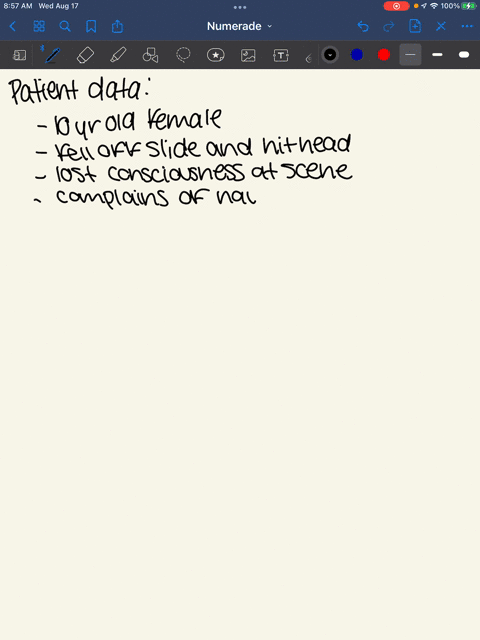 8:57 AM Wed Aug 17
100%
Numerade
T
Patient data:
- 10 yr old female
- fell off slide and hit head
- lost consciousness at scene
- complains of nau